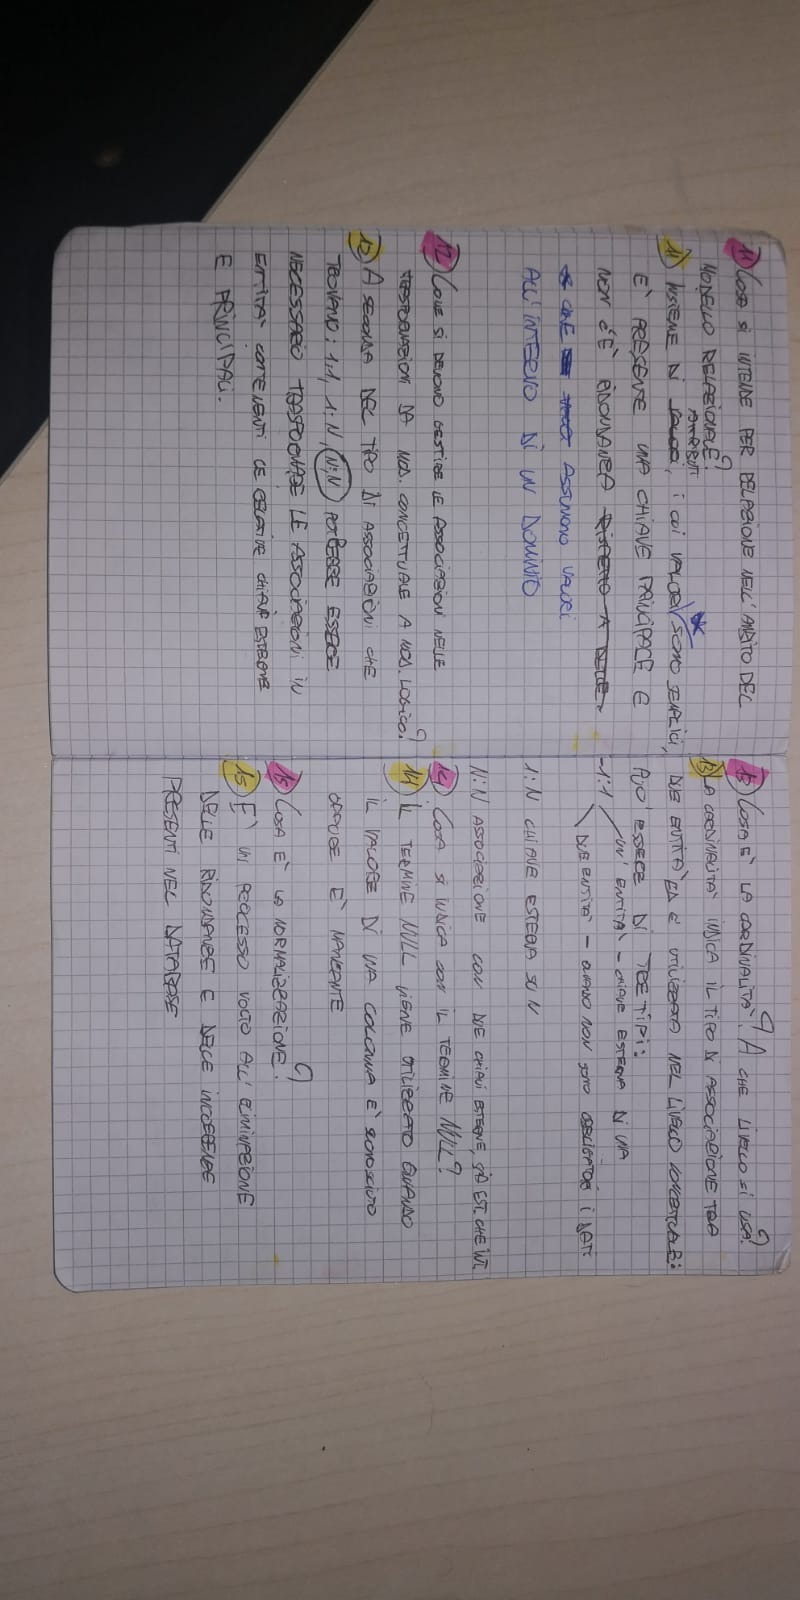 11) COSA SI INTENDE PER RELAZIONE NELL'AMBITO DEL
MODELLO RELAZIONALE?
ATTRIBUTI
11) INSIEME DI VALORI, I CUI VALORI SONO SEMPLICI,
È PRESENTE UNA CHIAVE PRINCIPALE E
NON C'È RIDONDANZA RISPETTO A DELLE
CHE ASSUMONO VALORI
ALL'INTERNO DI UN DOMINIO
12) COME SI DEVONO GESTIRE LE ASSOCIAZIONI NELLE
TRASFORMAZIONI DA MOD. CONCETTUALE A MOD. LOGICO?
12) A SECONDA DEL TIPO DI ASSOCIAZIONI CHE
TROVIAMO: 1:1, 1:N, N:N POTREBBE ESSERE
NECESSARIO TRASFORMARE LE ASSOCIAZIONI IN
ENTITÀ CONTENENTI LE RELATIVE CHIAVI ESTERNE
E PRINCIPALI.
13) COSA È LA CARDINALITÀ? A CHE LIVELLO SI USA?
13) LA CARDINALITÀ INDICA IL TIPO DI ASSOCIAZIONE TRA
DUE ENTITÀ ED È UTILIZZATA NEL LIVELLO CONCETTUALE:
PUO' ESSERE DI TRE TIPI:
UN' ENTITÀ - CHIAVE ESTERNA DI UNA
-1:1
DUE ENTITÀ - QUANDO NON SONO OBBLIGATORI I DATI
1:N CHIAVE ESTERNA SU N
N:N ASSOCIAZIONE CON DUE CHIAVI ESTERNE, SIA EST. CHE INT.
14) COSA SI INDICA CON IL TERMINE NULL?
14) IL TERMINE NULL VIENE UTILIZZATO QUANDO
IL VALORE DI UNA COLONNA È SCONOSCIUTO
OPPURE È MANCANTE
15) COSA È LA NORMALIZZAZIONE?
15) È UN PROCESSO VOLTO ALL' ELIMINAZIONE
DELLE RIDONDANZE E DELLE INCOERENZE
PRESENTI NEL DATABASE